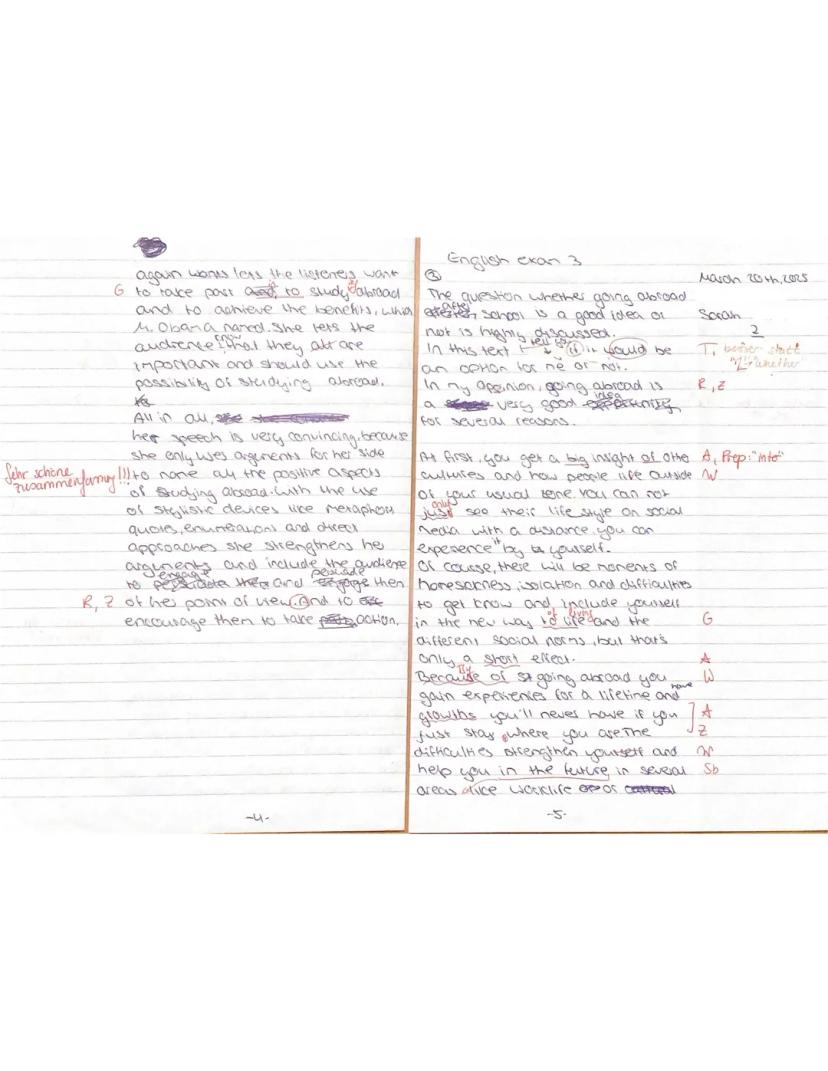 again wants lets the listeners want
G to take part and, in to study of abroad
and to achieve the benefits, which
M. Obama named. She lets the
audience know that they all are
important and should use the
possibility of studying abroad.
All in all,
her speech is very convincing, because
she only uses arguments for her side
Sehr schöne Zusammenfassung!!! to name all the positive aspects
of studying abroad. With the use
of stylistic devices like metaphors
quotes, enumerations and direct
approaches she strengthens her
arguments and include the audience
to engage and persuade them
R, Z of her point of view. And to
encourage them to take action.
-4-
English exam 3
March 20th, 2025
③
The question whether going abroad
after school is a good idea or Sarah
not is highly discussed. 2
In this text I tell if it would be T, besser statt
an option for me or not. "if": "whether"
In my opinion, going abroad is R, Z
a very good idea
for several reasons.
At first, you get a big insight of other A, Prep: "into"
cultures and how people life outside W
of your usual zone. You can not
only just see their life style on social
media with a distance, you can
experience it by yourself.
Of course, there will be moments of
homesickness, isolation and difficulties
to get know and include yourself
in the new way to life of living and the G
different social norms, but that's
only a short effect. A
Because of By going abroad you W
gain experiences for a lifetime and have
growths you'll never have if you A
just stay, where you are. The Z
difficulties strengthen yourself and W
help you in the future in several Sb
areas alike worklife or
-5-